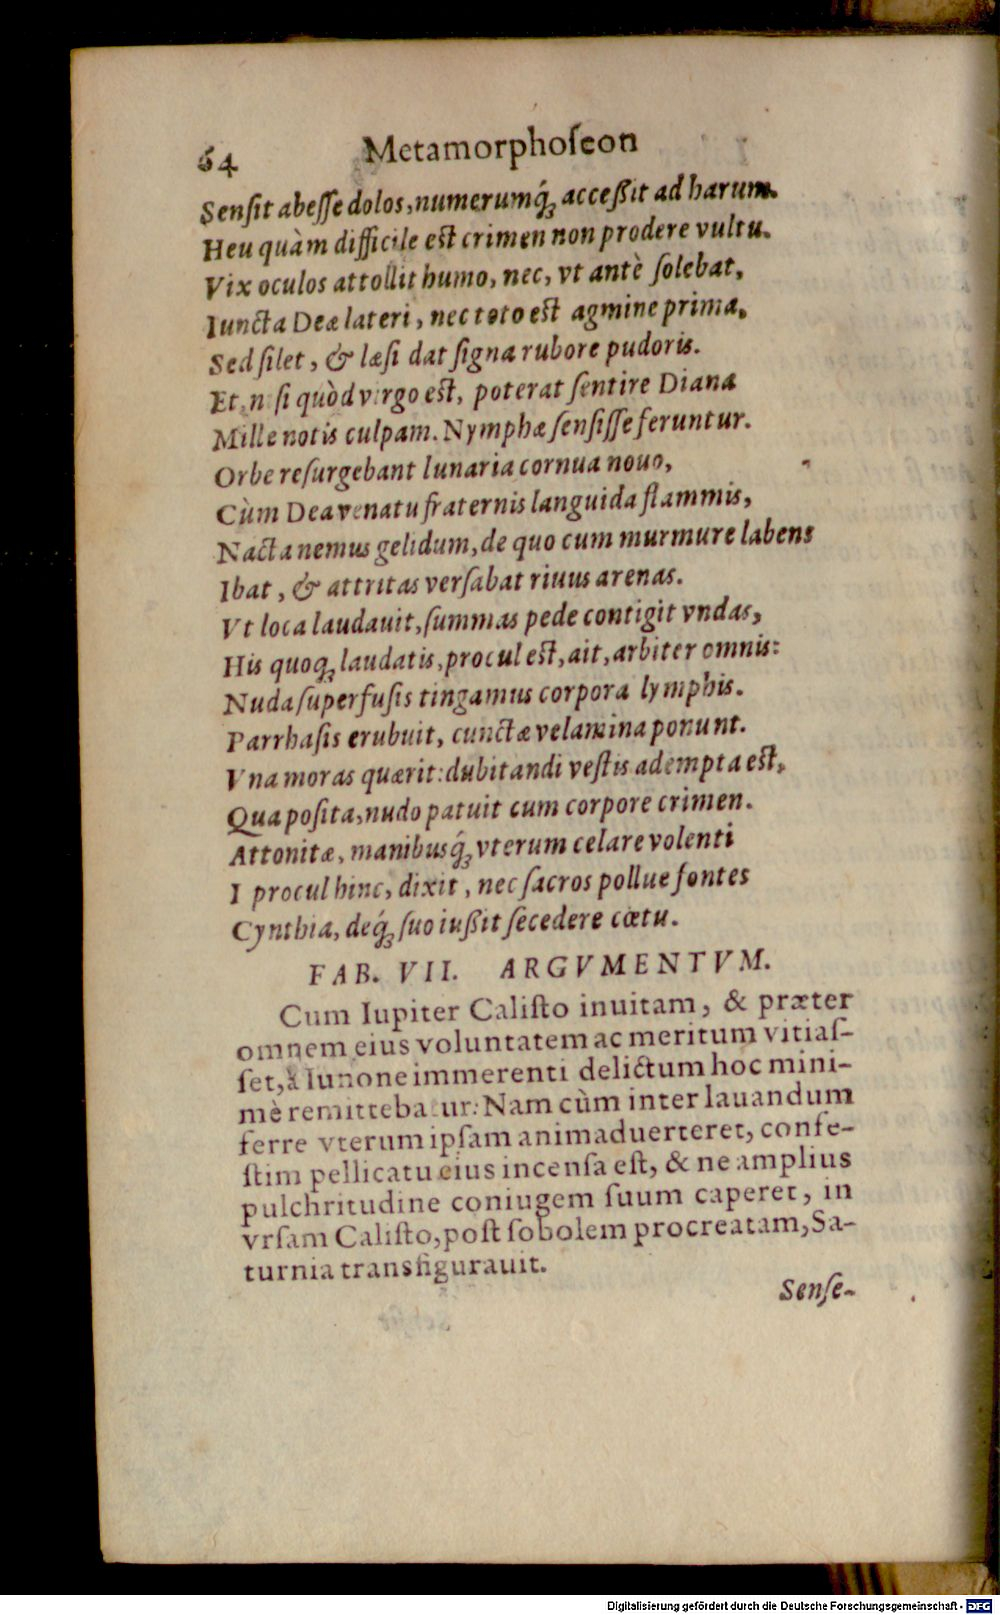 64 Metamorphoſeon
Senſit abeſſe dolos, numerumq́ꝫ acceßit ad harum.
Heu quàm difficile est crimen non prodere vultu.
Vix oculos attollit humo, nec, vt antè ſolebat,
Iuncta Deæ lateri, nec toto est agmine prima,
Sed ſilet, & læſi dat ſigna rubore pudoris.
Et, niſi quòd virgo est, poterat ſentire Diana
Mille notis culpam. Nymphæ ſenſiſſe feruntur.
Orbe reſurgebant lunaria cornua nouo,
Cùm Dea venatu fraternis languida flammis,
Nacta nemus gelidum, de quo cum murmure labens
Ibat, & attritas verſabat riuus arenas.
Vt loca laudauit, ſummas pede contigit vndas,
His quoqꝫ laudatis, procul est, ait, arbiter omnis:
Nuda ſuperfuſis tingamus corpora lymphis.
Parrhaſis erubuit, cunctæ velamina ponunt.
Vna moras quærit: dubitandi veſtis adempta est,
Qua poſita, nudo patuit cum corpore crimen.
Attonitæ, manibusq́ꝫ vterum celare volenti
I procul hinc, dixit, nec ſacros pollue fontes
Cynthia, deq́ꝫ ſuo iußit ſecedere cœtu.
FAB. VII. ARGVMENTVM.
Cum Iupiter Caliſto inuitam, & præter
omnem eius voluntatem ac meritum vitiaſ-
ſet, à Iunone immerenti delictum hoc mini-
mè remittebatur: Nam cùm inter lauandum
ferre vterum ipſam animaduerteret, confe-
ſtim pellicatu eius incenſa eſt, & ne amplius
pulchritudine coniugem ſuum caperet, in
vrſam Caliſto, poſt ſobolem procreatam, Sa-
turnia transfigurauit.
Senſe-
Digitalisierung gefördert durch die Deutsche Forschungsgemeinschaft - DFG